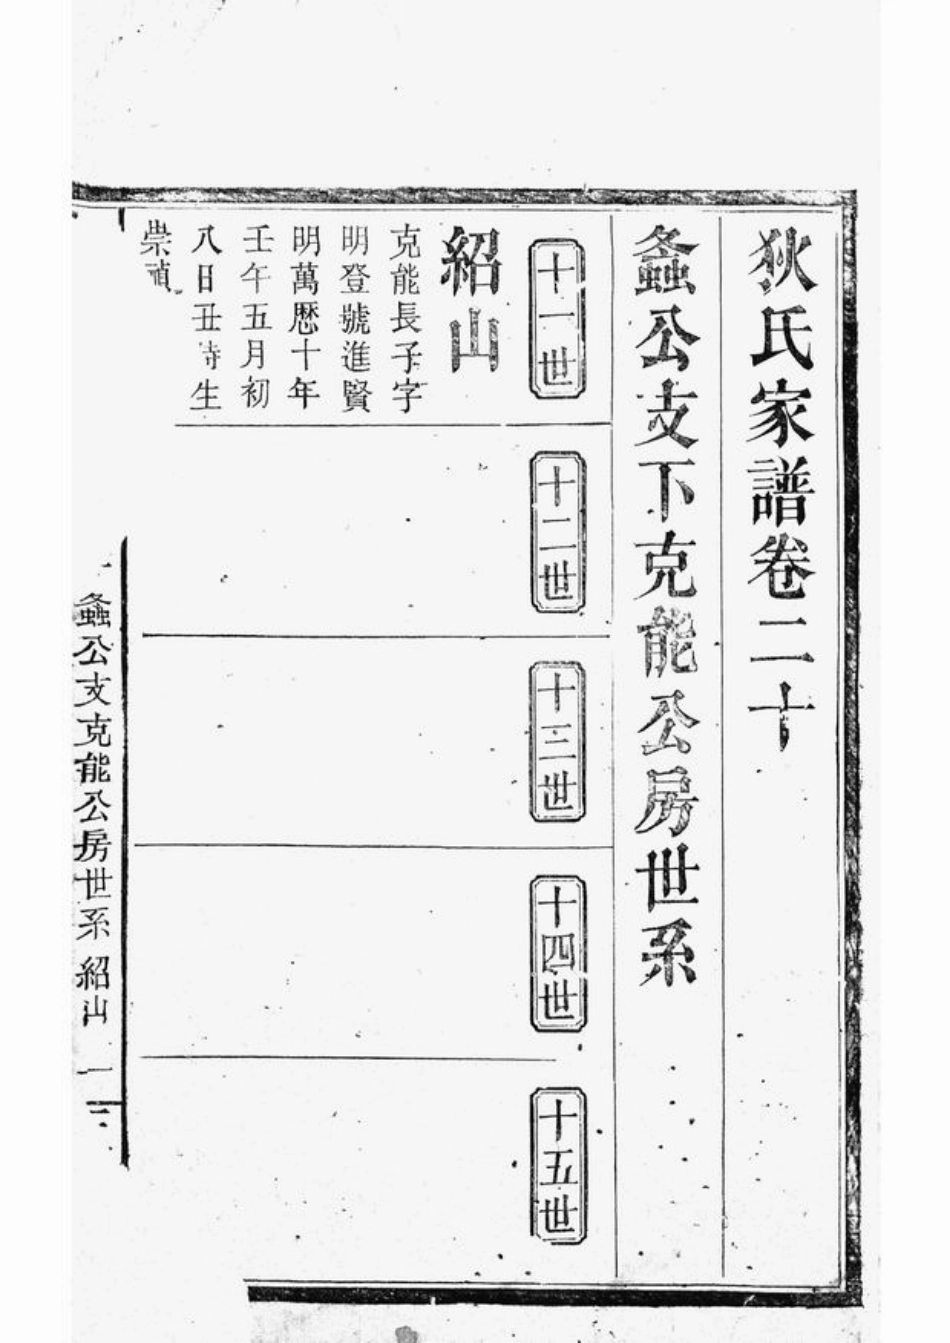 狄氏家譜卷二十
螽公支下克能公房世系
十一世
紹山
克能長子字
明登號進賢
明萬歷十年
壬午五月初
八日丑時生
崇禎
十二世
十三世
十四世
十五世
螽公支克能公房世系 紹山 一